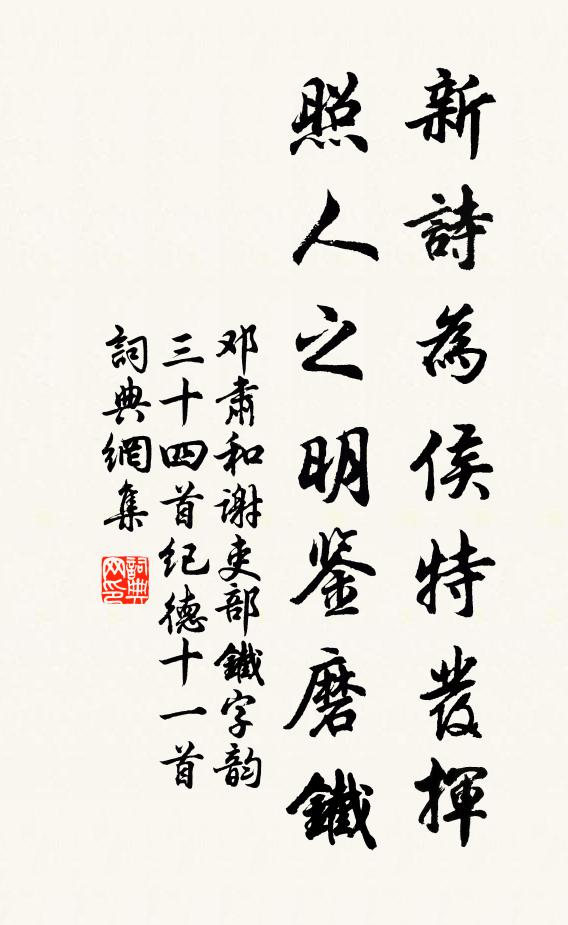 新詩為侯特發揮
照人之明鉴磨鐵
邓肃和谢吏部鐵字韵
三十四首纪德十一首
詞典網集
詞典网印